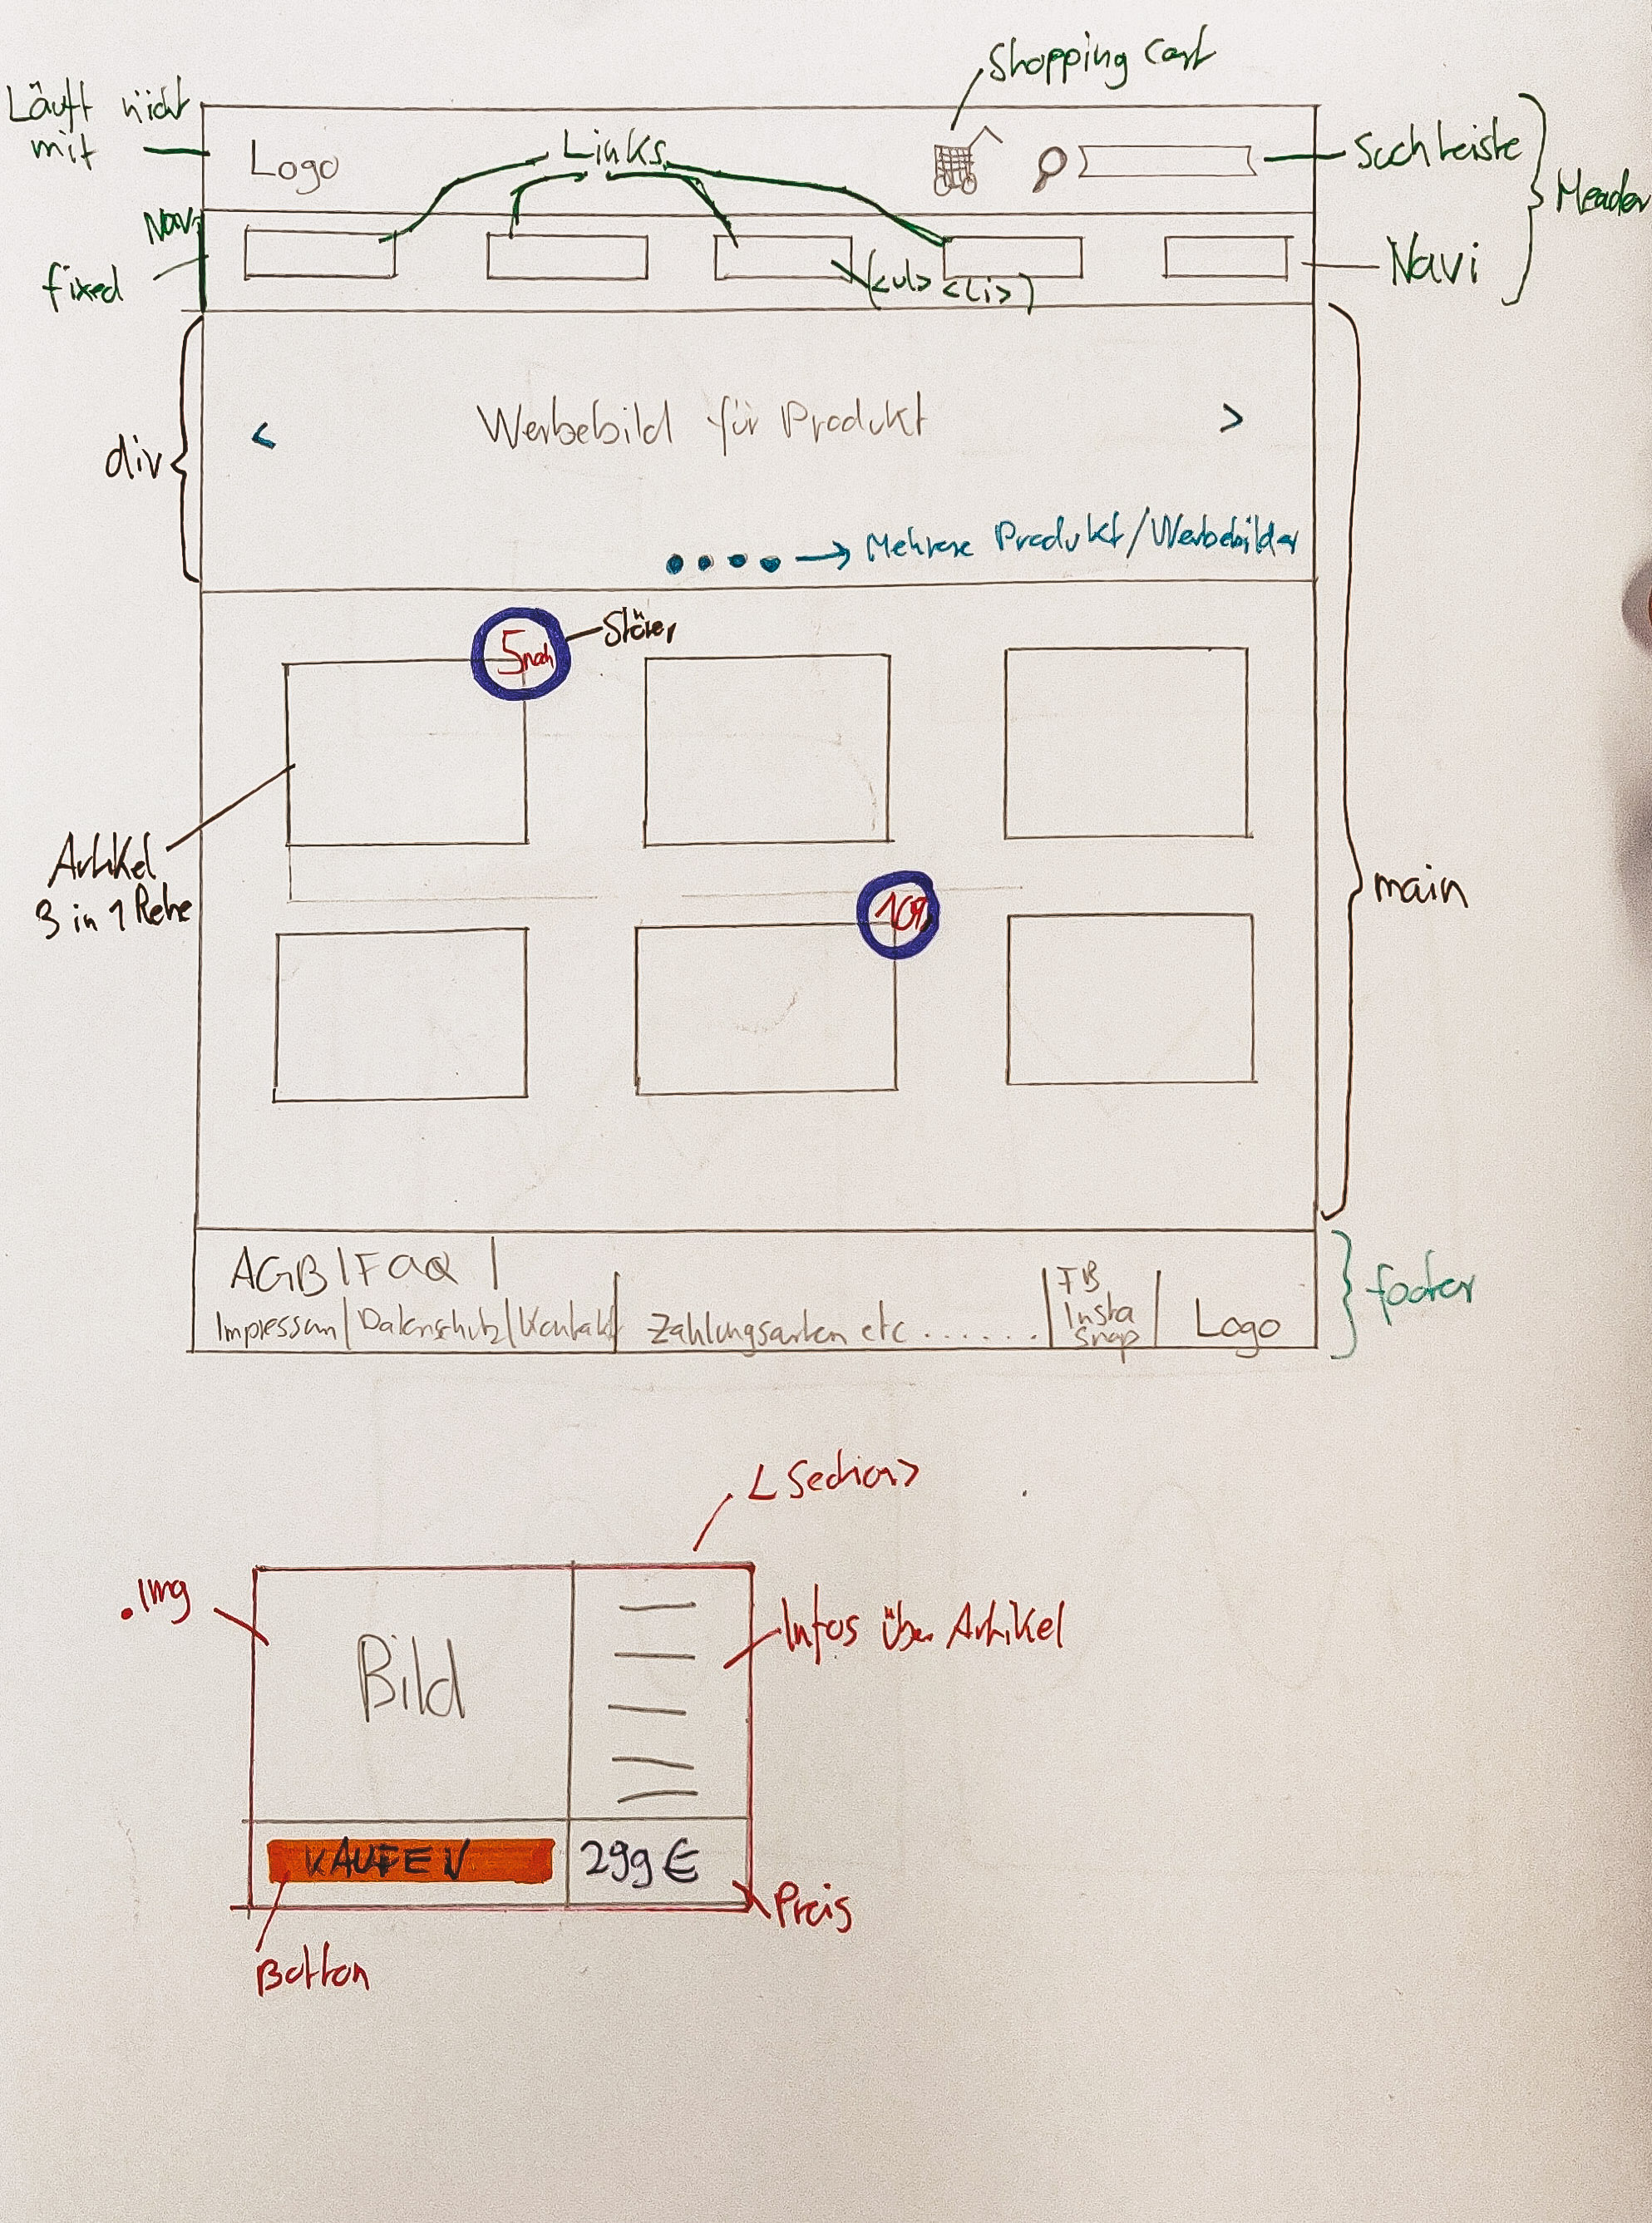 Shopping Cart
Läuft nicht
mit
Logo
Links
Suchleiste
Header
Nav
fixed
(<ul> <li>)
Navi
div
<
Werbebild für Produkt
>
Mehrere Produkt/Werbebilder
5 noch
Störer
Artikel
3 in 1 Reihe
10%
main
AGB | FaQ |
Impressum | Datenschutz | Kontakt
Zahlungsarten etc.......
FB
Insta
Snap
Logo
footer
<Section>
.img
Bild
Infos über Artikel
KAUFEN
299 €
Preis
Botton